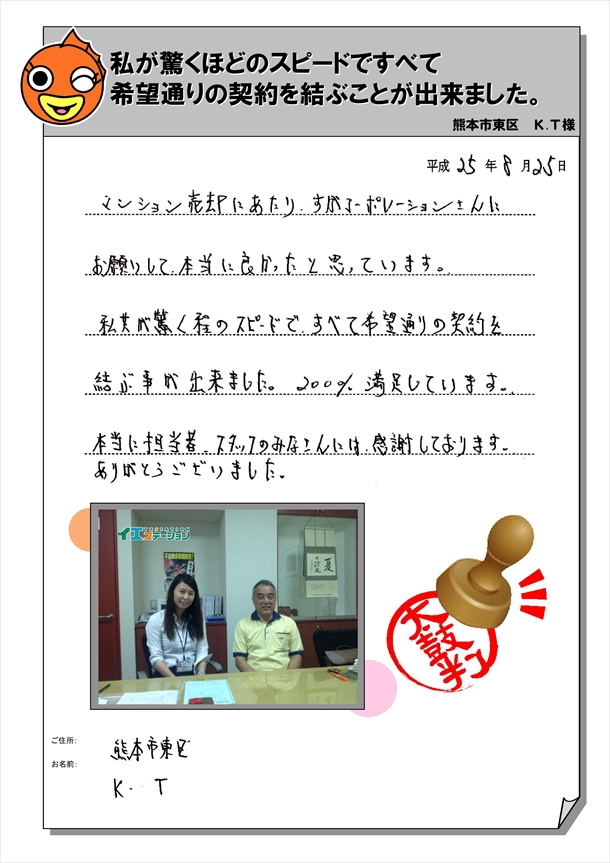 私が驚くほどのスピードですべて
希望通りの契約を結ぶことが出来ました。
熊本市東区 K.T様
平成 25 年 8 月 25 日
マンション売却にあたり、すがコーポレーションさんに
お願いして、本当に良かったと思っています。
私共が驚く程のスピードで、すべて希望通りの契約を
結ぶ事が出来ました。200% 満足しています。
本当に担当者、スタッフのみなさんには、感謝しております。
ありがとうございました。
イエステーション
夏
太鼓判
ご住所:
熊本市東区
お名前:
K. T